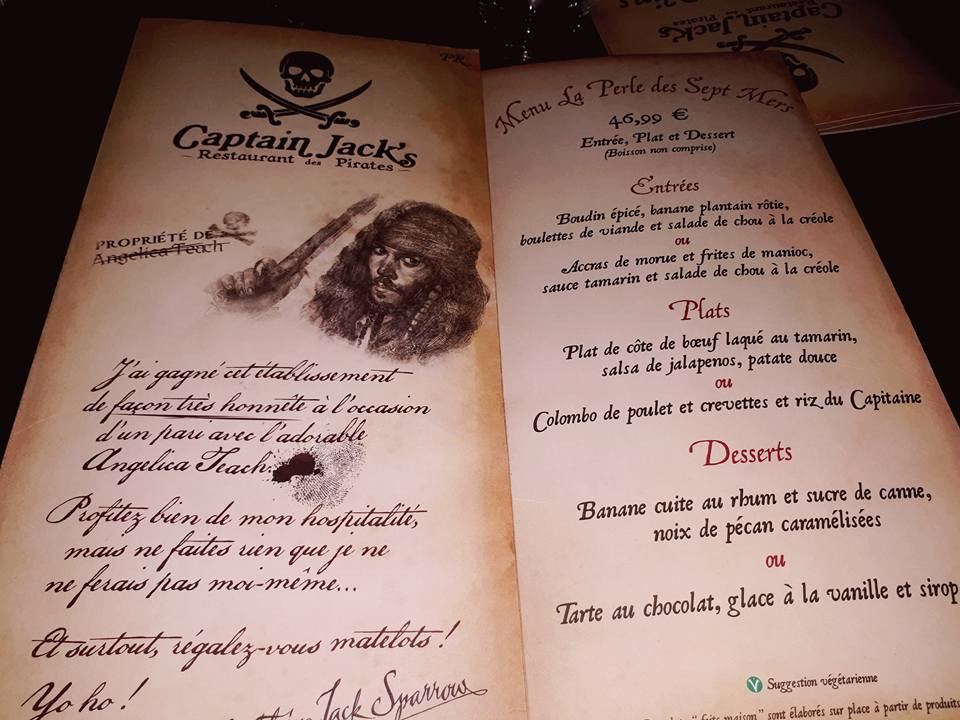 PR
Captain Jack's
Restaurant des Pirates
PROPRIÉTÉ DE
Angelica Teach
J'ai gagné cet établissement
de façon très honnête à l'occasion
d'un pari avec l'adorable
Angelica Teach.
Profitez bien de mon hospitalité,
mais ne faites rien que je ne
ne ferais pas moi-même...
Et surtout, régalez-vous matelots !
Yo ho !
Jack Sparrow
Menu La Perle des Sept Mers
46,99 €
Entrée, Plat et Dessert
(Boisson non comprise)
Entrées
Boudin épicé, banane plantain rôtie,
boulettes de viande et salade de chou à la créole
ou
Accras de morue et frites de manioc,
sauce tamarin et salade de chou à la créole
Plats
Plat de côte de bœuf laqué au tamarin,
salsa de jalapenos, patate douce
ou
Colombo de poulet et crevettes et riz du Capitaine
Desserts
Banane cuite au rhum et sucre de canne,
noix de pécan caramélisées
ou
Tarte au chocolat, glace à la vanille et sirop
V Suggestion végétarienne
"faits maison" sont élaborés sur place à partir de produits
Captain Jack's
Restaurant des Pirates